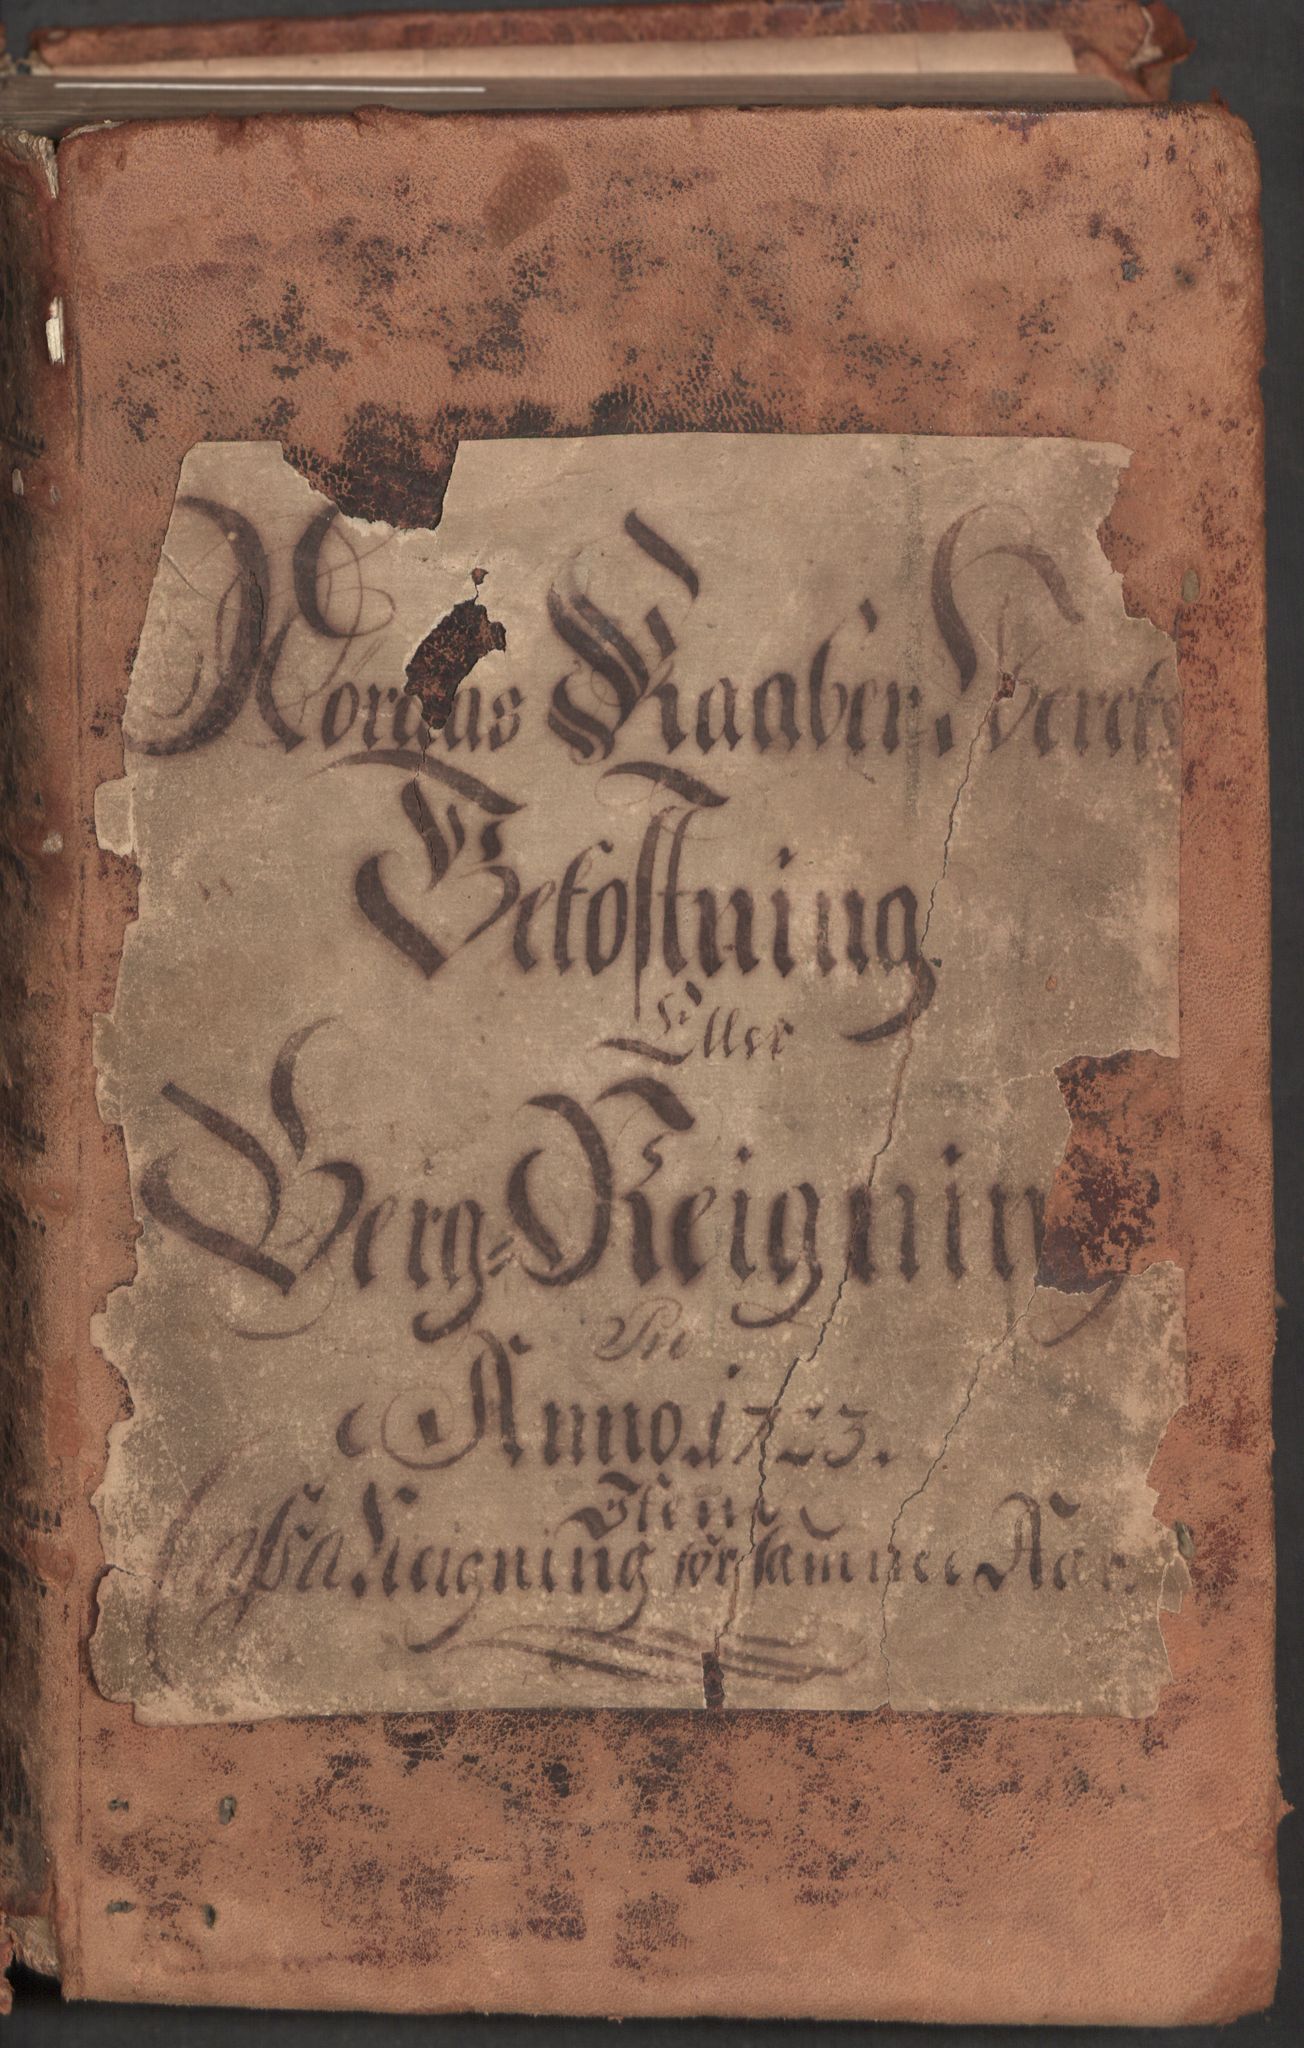 Roraas Kaaber Verks
Bekostning
Eller
Berg-Reigning
Pro
Anno 1723.
Item
Cassa Reigning for samme Aar.